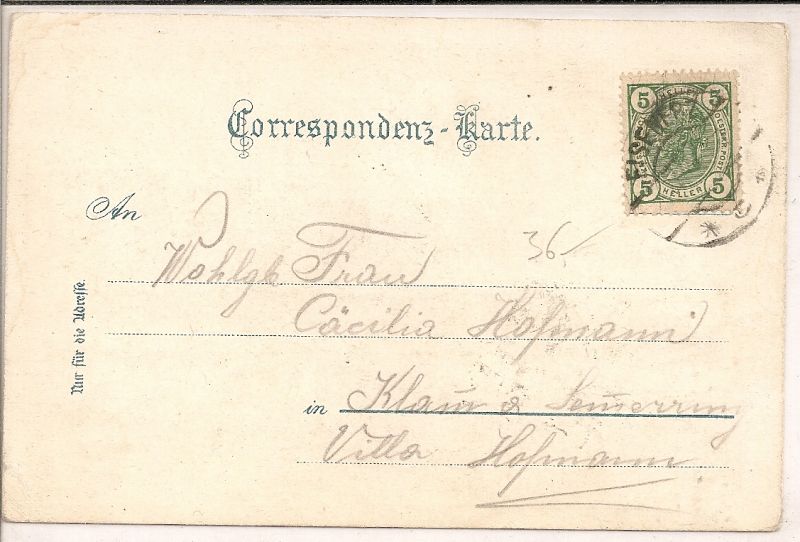 Correspondenz-Karte.
5 HELLER 5
5 HELLER 5
EISEN
An
36
Wohlgb Frau
Cäcilia Hofmann
in Klamm a Semmering
Villa Hofmann
Nur für die Adresse.